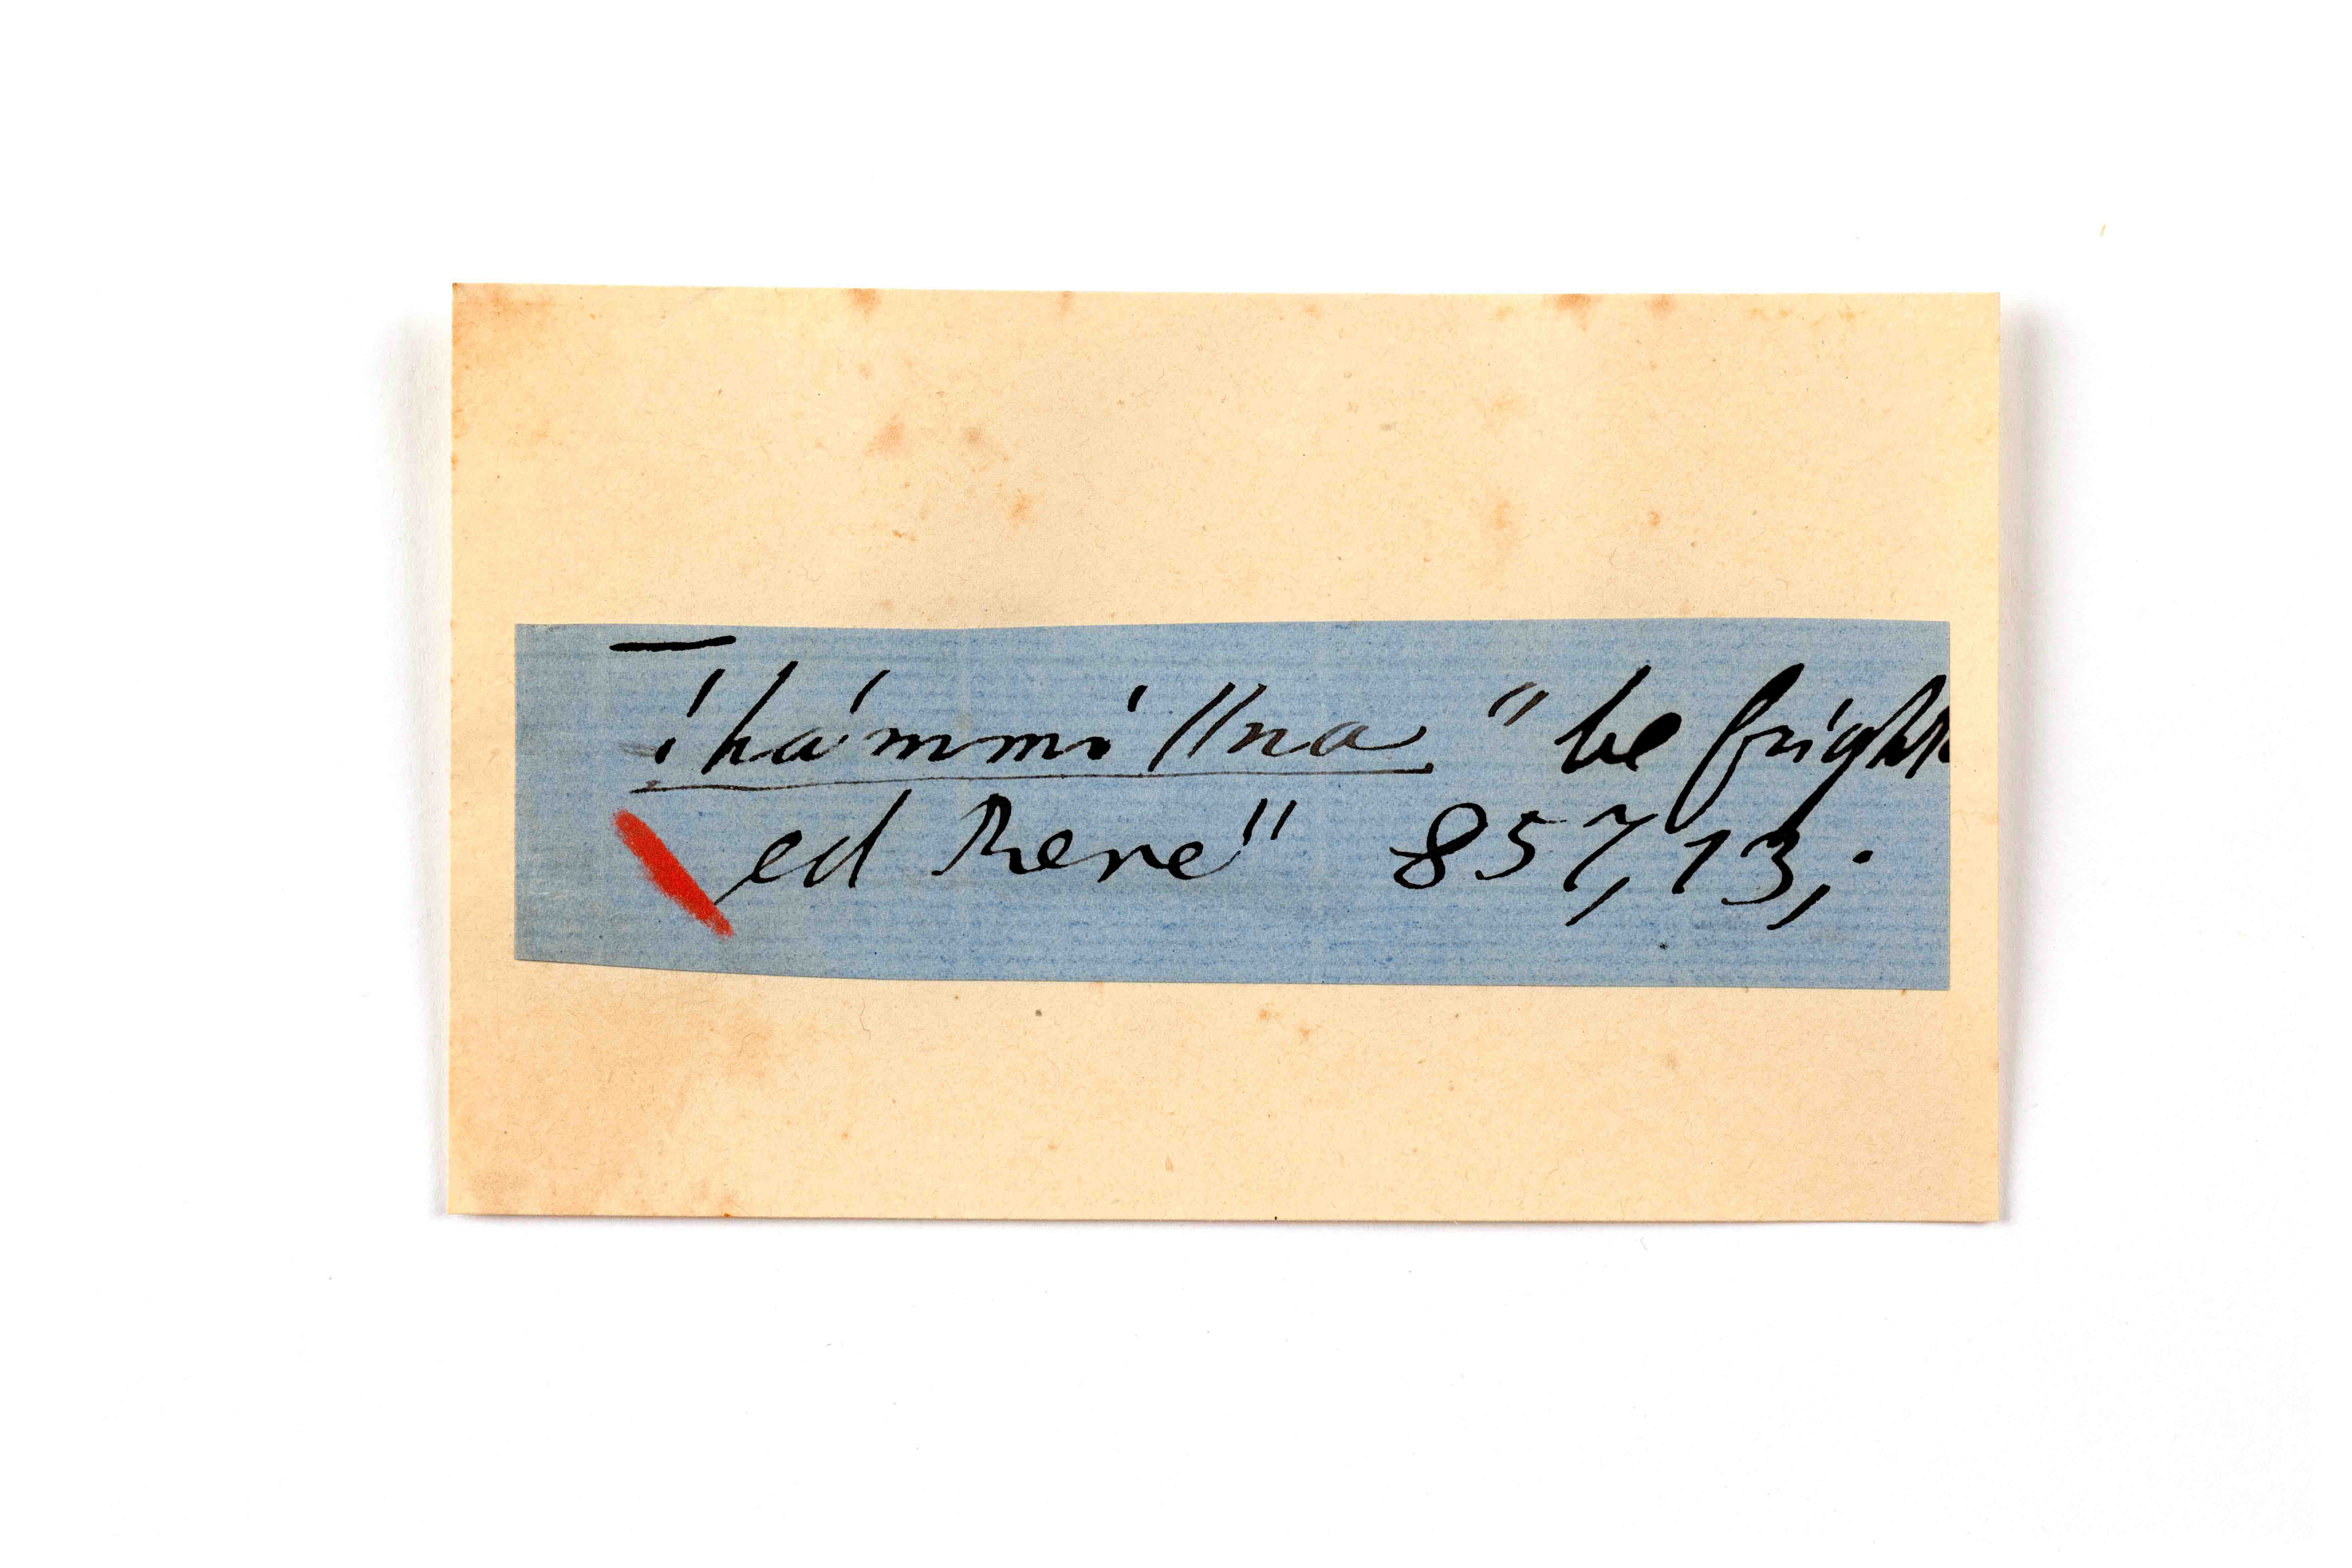 !hámmi //na "be fright
ed there" 857,13;.